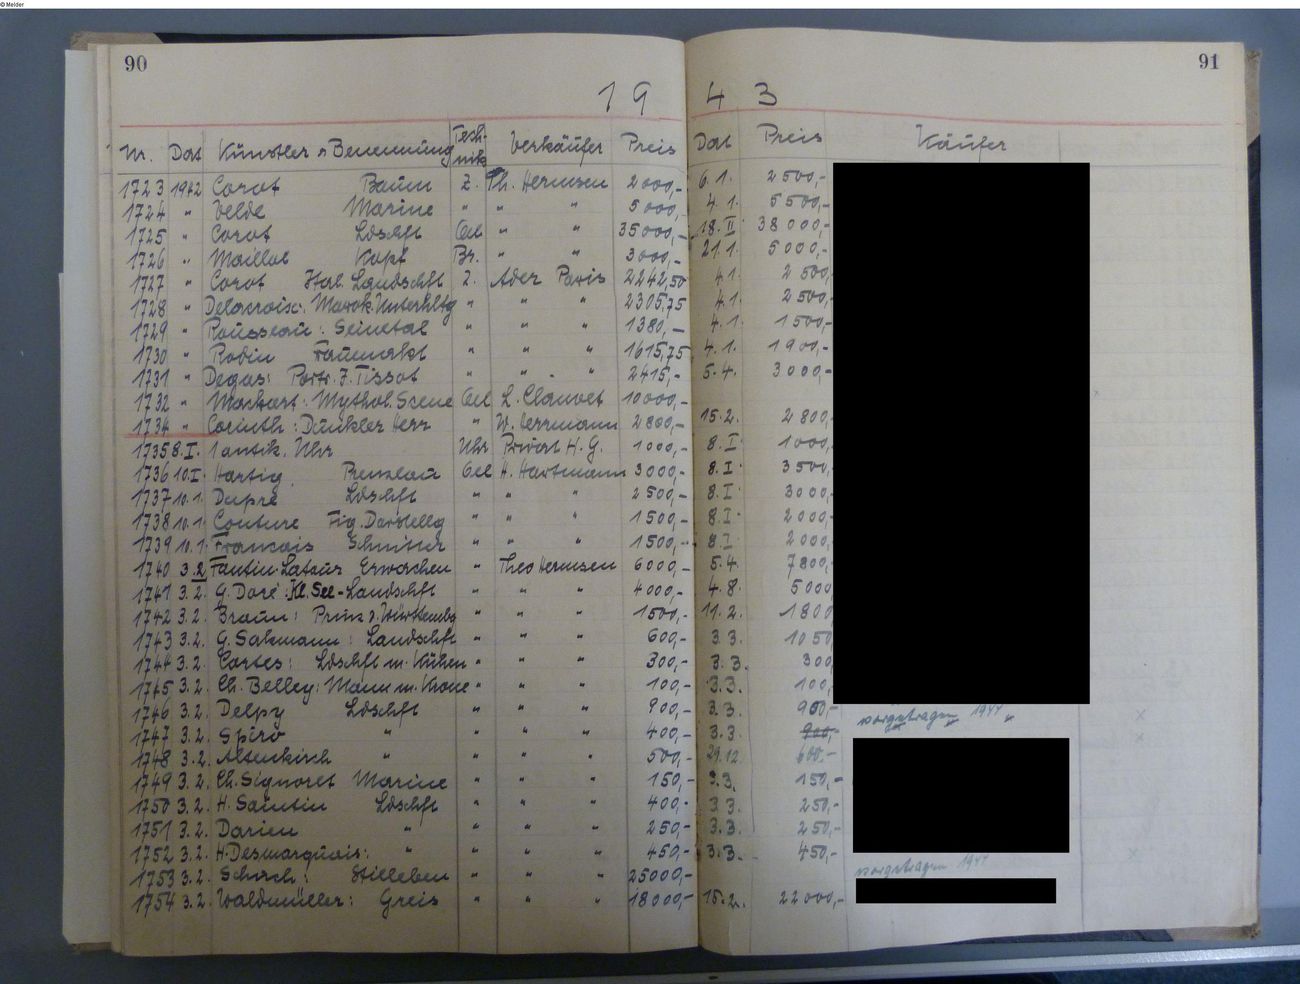 © Melder
90
91
19 43
Nr. Dat Künstler u Benennung Tech-nik Verkäufer Preis Dat Preis Käufer
1723 1942 Corot Baum Z. Th. Hermsen 2000,- 6.1. 2500,-
1724 " Velde Marine " " " 5000,- 4.1. 5500,-
1725 " Corot Ldschft Oel " " 35000,- 18.II. 38000,-
1726 " Maillol Kopf Br. " " 3000,- 21.1. 5000,-
1727 " Corot Ital. Landschft Z. Ader Paris 2242,50 4.1. 2500,-
1728 " Delacroix: Marok. Unterhltg " " " 2305,75 4.1. 2500,-
1729 " Rousseau: Seinetal " " " 1380,- 4.1. 1500,-
1730 " Rodin Frauenakt " " " 1615,75 4.1. 1900,-
1731 " Degas: Portr. J. Tissot " " " 2415,- 5.4. 3000,-
1732 " Mackart: Mythol. Szene Oel L. Clauvet 10000,-
1734 " Corinth: Dunkler Herr " W. Herrmann 2800,- 15.2. 2800,-
1735 8.I. 1 antik. Uhr Uhr Privat H. G. 1000,- 8.I. 1000,-
1736 10.I. Hartig Prenzlau Oel H. Hartmann 3000,- 8.I. 3500,-
1737 10.1. Dupré Ldschft " " " 2500,- 8.I. 3000,-
1738 10.1. Couture Fig. Darstellg " " " 1500,- 8.I. 2000,-
1739 10.1. Francais Schnitter " " " 1500,- 8.I. 2000,-
1740 3.2. Fantin-Latour Erwachen " Theo Hermsen 6000,- 5.4. 7800,-
1741 3.2. G. Doré: Kl. See-Landschft " " " 4000,- 4.8. 5000
1742 3.2. Braun: Prinz v. Württembg " " " 1500,- 11.2. 1800
1743 3.2. G. Salzmann: Landschft " " " 600,- 3.3. 1050
1744 3.2. Cortes: Ldschft m. Kühen " " " 300,- 3.3. 300,
1745 3.2. Ch. Belley: Mann m. Krone " " " 100,- 3.3. 100,
1746 3.2. Delpy Ldschft " " " 900,- 3.3. 900,-
vorgetragen 1944
1747 3.2. Spiro " " " " 400,- 3.3. 900,-
1748 3.2. Altenkirch " " " " 500,- 29.12. 600,-
1749 3.2. Ch. Signoret Marine " " " 150,- 3.3. 150,-
1750 3.2. H. Saintin Ldschft " " " 400,- 3.3. 250,-
1751 3.2. Darien " " " " 250,- 3.3. 250,-
1752 3.2. H. Desmarquais: " " " " 450,- 3.3. 450,-
vorgetragen 1944
1753 3.2. Schuch: Stilleben " " " 25000,-
1754 3.2. Waldmüller: Greis " " " 18000,- 15.2. 22000,-